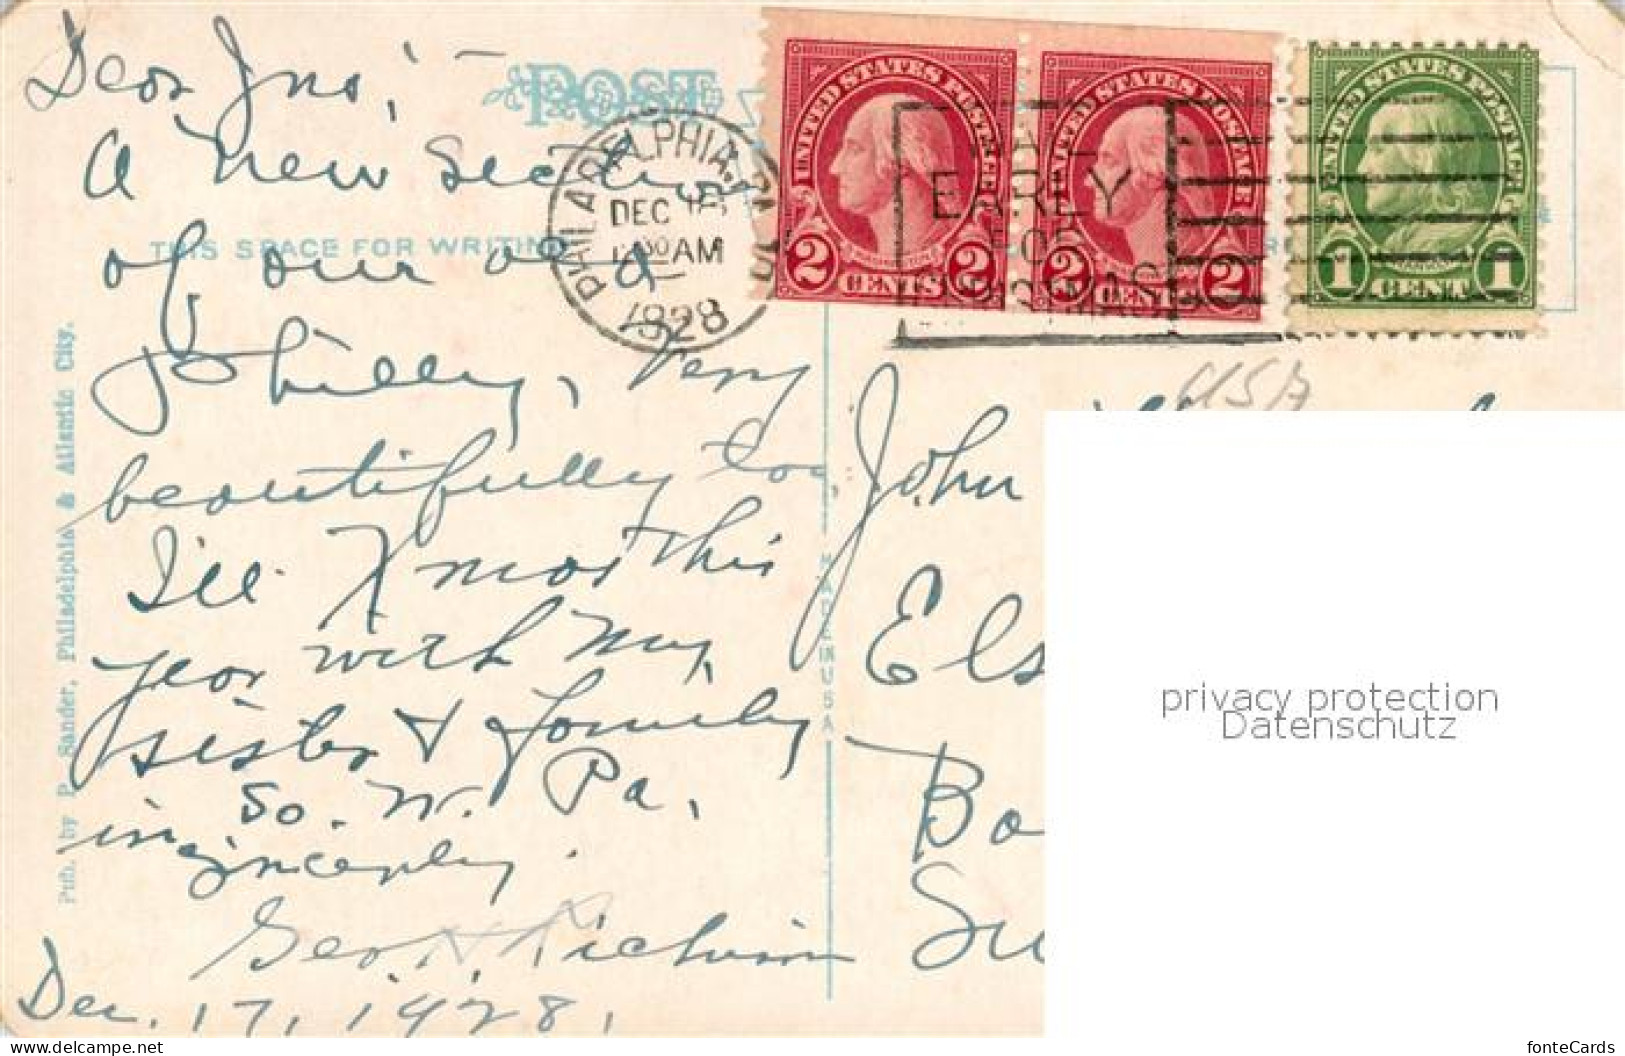 Dear Jno,
POST
A new section
of our old
Philly, Very
beautifully too,
I'll Xmas this
year with my
sister & family
in So. W. Pa.
Sincerely.
Geo.
Dec. 17, 1928,
THIS SPACE FOR WRITING
PHILADELPHIA, PA.
DEC 18
AM
1928
MAIL
EARLY
FOR
CHRISTMAS
UNITED STATES POSTAGE
2 CENTS 2
UNITED STATES POSTAGE
2 CENTS 2
UNITED STATES POSTAGE
1 CENT 1
USA
John
Els
Bo
Su
MADE IN USA
Pub. by P. Sander, Philadelphia & Atlantic City.
privacy protection
Datenschutz
www.delcampe.net
fonteCards